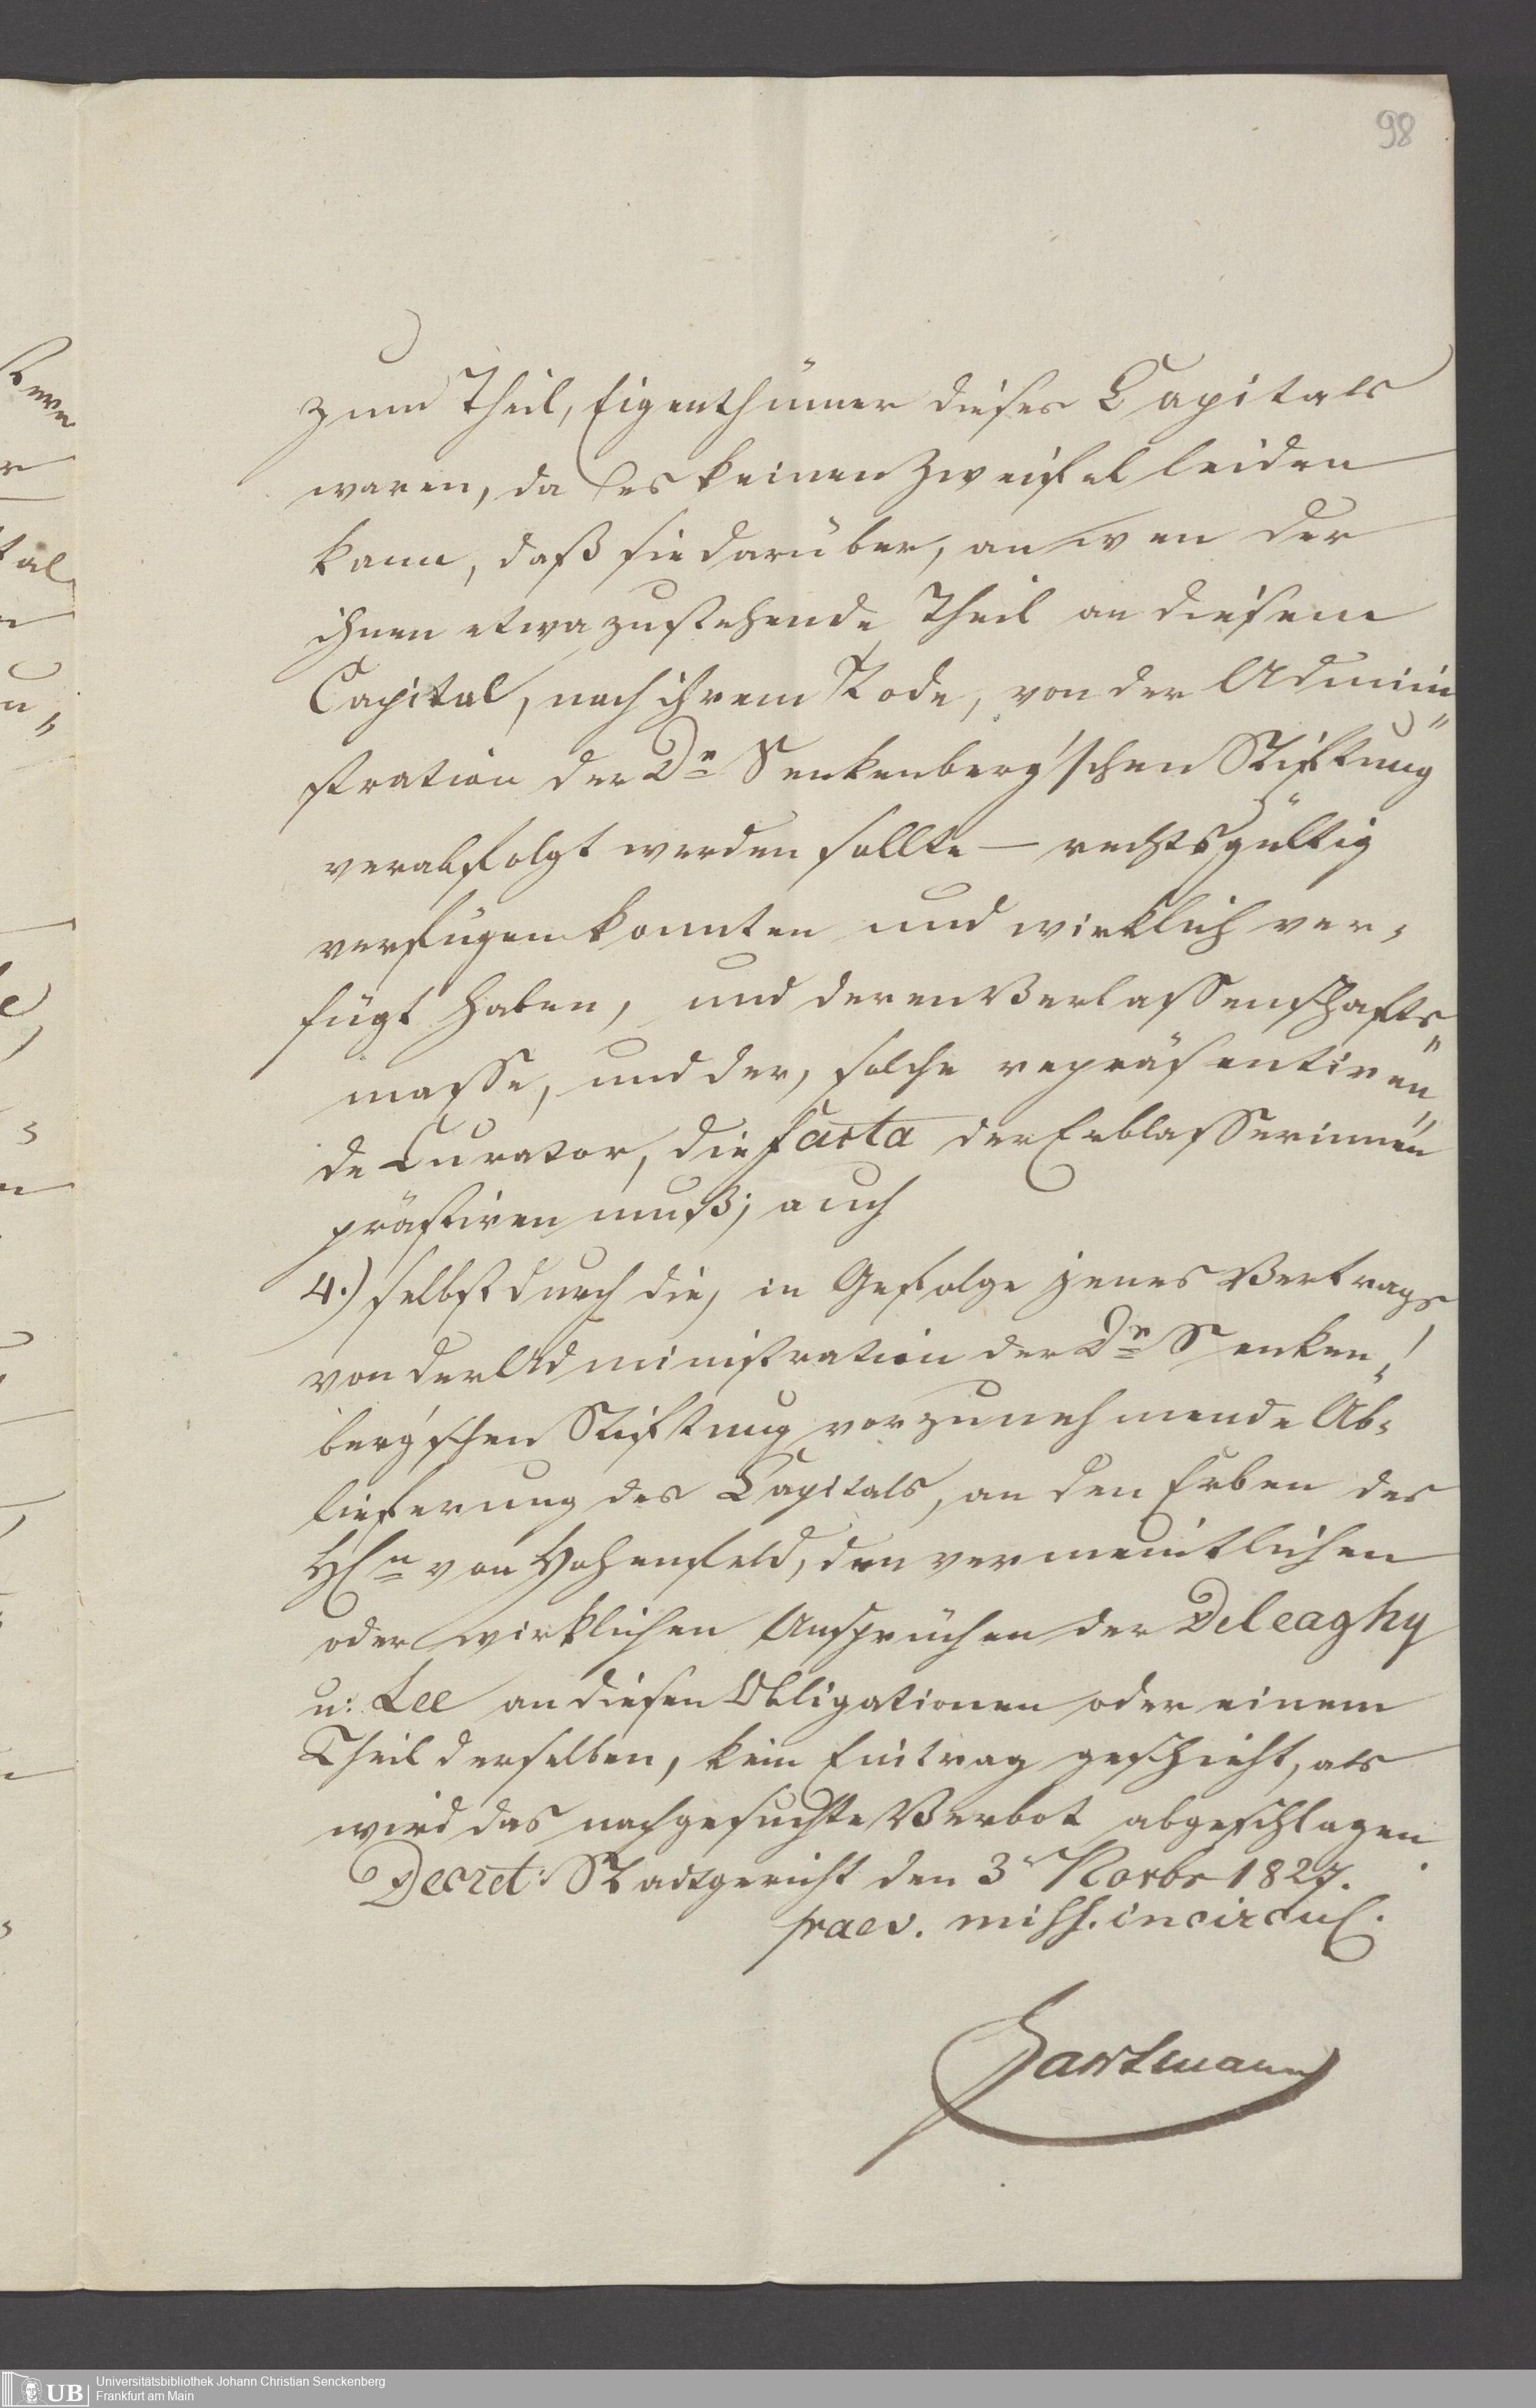 98
zum Theil, Eigenthümer dieses Capitals
waren, da es keinen Zweifel leiden
kann, daß sie darüber, an wen der
ihnen etwa zustehende Theil an diesem
Capital, nach ihrem Tode, von der Admini„
stration der Dr Senkenberg'schen Stiftung
verabfolgt werden sollte — rechtsgültig
verfügen konnten und wirklich ver,
fügt haben, und deren Verlassenschafts„
masse, und der, solche repräsentiren„
de Curator, die facta der Erblasserinnen
prästiren muß; auch
4.) selbst durch die, in Gefolge jenes Vertrags
von der Administration der Dr Senken„
berg'schen Stiftung vorzunehmende Ab,
lieferung des Capitals, an den Erben des
Hn von Hohenfeld, den vermeintlichen
oder wirklichen Ansprüchen der Deleaghy
u: Lee an diesen Obligationen oder einem
Theil derselben, kein Eintrag geschieht, als
wird das nachgesuchte Verbot abgeschlagen.
Decret: Stadtgericht den 3n Novbr 1827.
praev. miss. in circul.
Hartmann
UB
Universitätsbibliothek Johann Christian Senckenberg
Frankfurt am Main